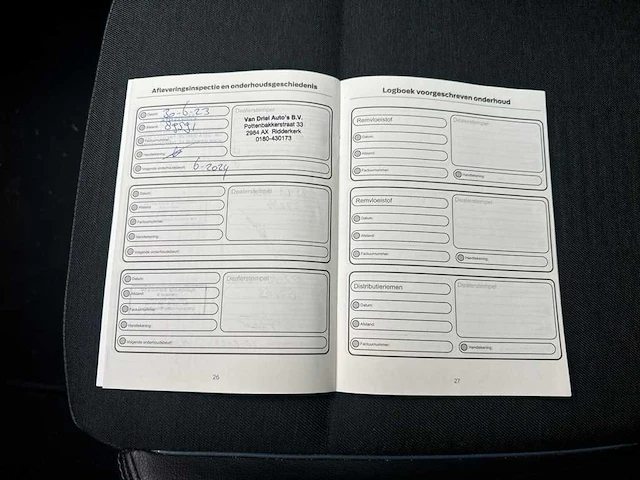 Afleveringsinspectie en onderhoudsgeschiedenis
Datum: 30-6-23
Afstand: 89591
Factuurnummer:
Handtekening:
Volgende onderhoudsbeurt: 6-2024
Dealerstempel
Van Driel Auto's B.V.
Pottenbakkerstraat 33
2984 AX Ridderkerk
0180-430173
Datum:
Afstand:
Factuurnummer:
Handtekening:
Volgende onderhoudsbeurt:
Dealerstempel
Datum:
Afstand:
Factuurnummer:
Handtekening:
Volgende onderhoudsbeurt:
Dealerstempel
26
Logboek voorgeschreven onderhoud
Remvloeistof
Datum:
Afstand:
Factuurnummer:
Dealerstempel
Handtekening:
Remvloeistof
Datum:
Afstand:
Factuurnummer:
Dealerstempel
Handtekening:
Distributieriemen
Datum:
Afstand:
Factuurnummer:
Dealerstempel
Handtekening:
27